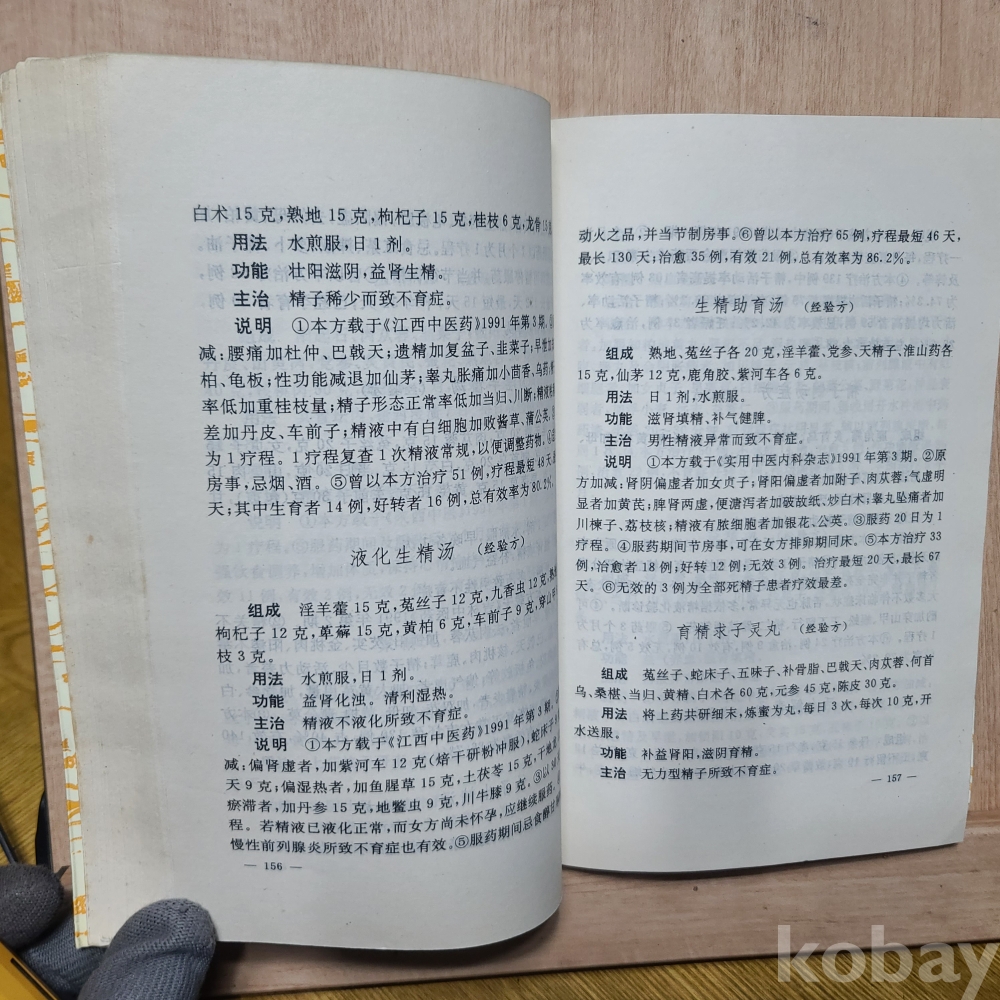 白术 15 克,熟地 15 克,枸杞子 15 克,桂枝 6 克,龙骨 15
用法 水煎服,日 1 剂。
功能 壮阳滋阴,益肾生精。
主治 精子稀少而致不育症。
说明 ①本方载于《江西中医药》1991 年第 3 期。②
减:腰痛加杜仲、巴戟天;遗精加复盆子、韭菜子;早泄加
柏、龟板;性功能减退加仙茅;睾丸胀痛加小茴香,乌药;
率低加重桂枝量;精子形态正常率低加当归、川断;精液
差加丹皮、车前子;精液中有白细胞加败酱草、蒲公英。
为 1 疗程。1 疗程复查 1 次精液常规,以便调整药物。
房事,忌烟、酒。⑤曾以本方治疗 51 例,疗程最短 48 天
天;其中生育者 14 例,好转者 16 例,总有效率为 80.2%。
液化生精汤 (经验方)
组成 淫羊藿 15 克,菟丝子 12 克,九香虫 12 克,熟
枸杞子 12 克,萆薢 15 克,黄柏 6 克,车前子 9 克,穿山甲
枝 3 克。
用法 水煎服,日 1 剂。
功能 益肾化浊。清利湿热。
主治 精液不液化所致不育症。
说明 ①本方载于《江西中医药》1991 年第 3 期。
减:偏肾虚者,加紫河车 12 克(焙干研粉冲服),蛇床子
天 9 克;偏湿热者,加鱼腥草 15 克,土茯苓 15 克,干地
瘀滞者,加丹参 15 克,地鳖虫 9 克,川牛膝 9 克。③以
程。若精液已液化正常,而女方尚未怀孕,应继续服药,
慢性前列腺炎所致不育症也有效。⑤服药期间忌食
— 156 —
动火之品,并当节制房事。⑥曾以本方治疗 65 例,疗程最短 46 天,
最长 130 天;治愈 35 例,有效 21 例,总有效率为 86.2%。
生精助育汤 (经验方)
组成 熟地、菟丝子各 20 克,淫羊藿、党参、天精子、淮山药各
15 克,仙茅 12 克,鹿角胶、紫河车各 6 克。
用法 日 1 剂,水煎服。
功能 滋肾填精、补气健脾。
主治 男性精液异常而致不育症。
说明 ①本方载于《实用中医内科杂志》1991 年第 3 期。②原
方加减:肾阴偏虚者加女贞子;肾阳偏虚者加附子、肉苁蓉;气虚明
显者加黄芪;脾肾两虚,便溏泻者加破故纸、炒白术;睾丸坠痛者加
川楝子、荔枝核;精液有脓细胞者加银花、公英。③服药 20 日为 1
疗程。④服药期间节房事,可在女方排卵期同床。⑤本方治疗 33
例,治愈者 18 例;好转 12 例;无效 3 例。治疗最短 20 天,最长 67
天。⑥无效的 3 例为全部死精子患者疗效最差。
育精求子灵丸 (经验方)
组成 菟丝子、蛇床子、五味子、补骨脂、巴戟天、肉苁蓉、何首
乌、桑椹、当归、黄精、白术各 60 克,元参 45 克,陈皮 30 克。
用法 将上药共研细末,炼蜜为丸,每日 3 次,每次 10 克,开
水送服。
功能 补益肾阳,滋阴育精。
主治 无力型精子所致不育症。
— 157 —
kobay